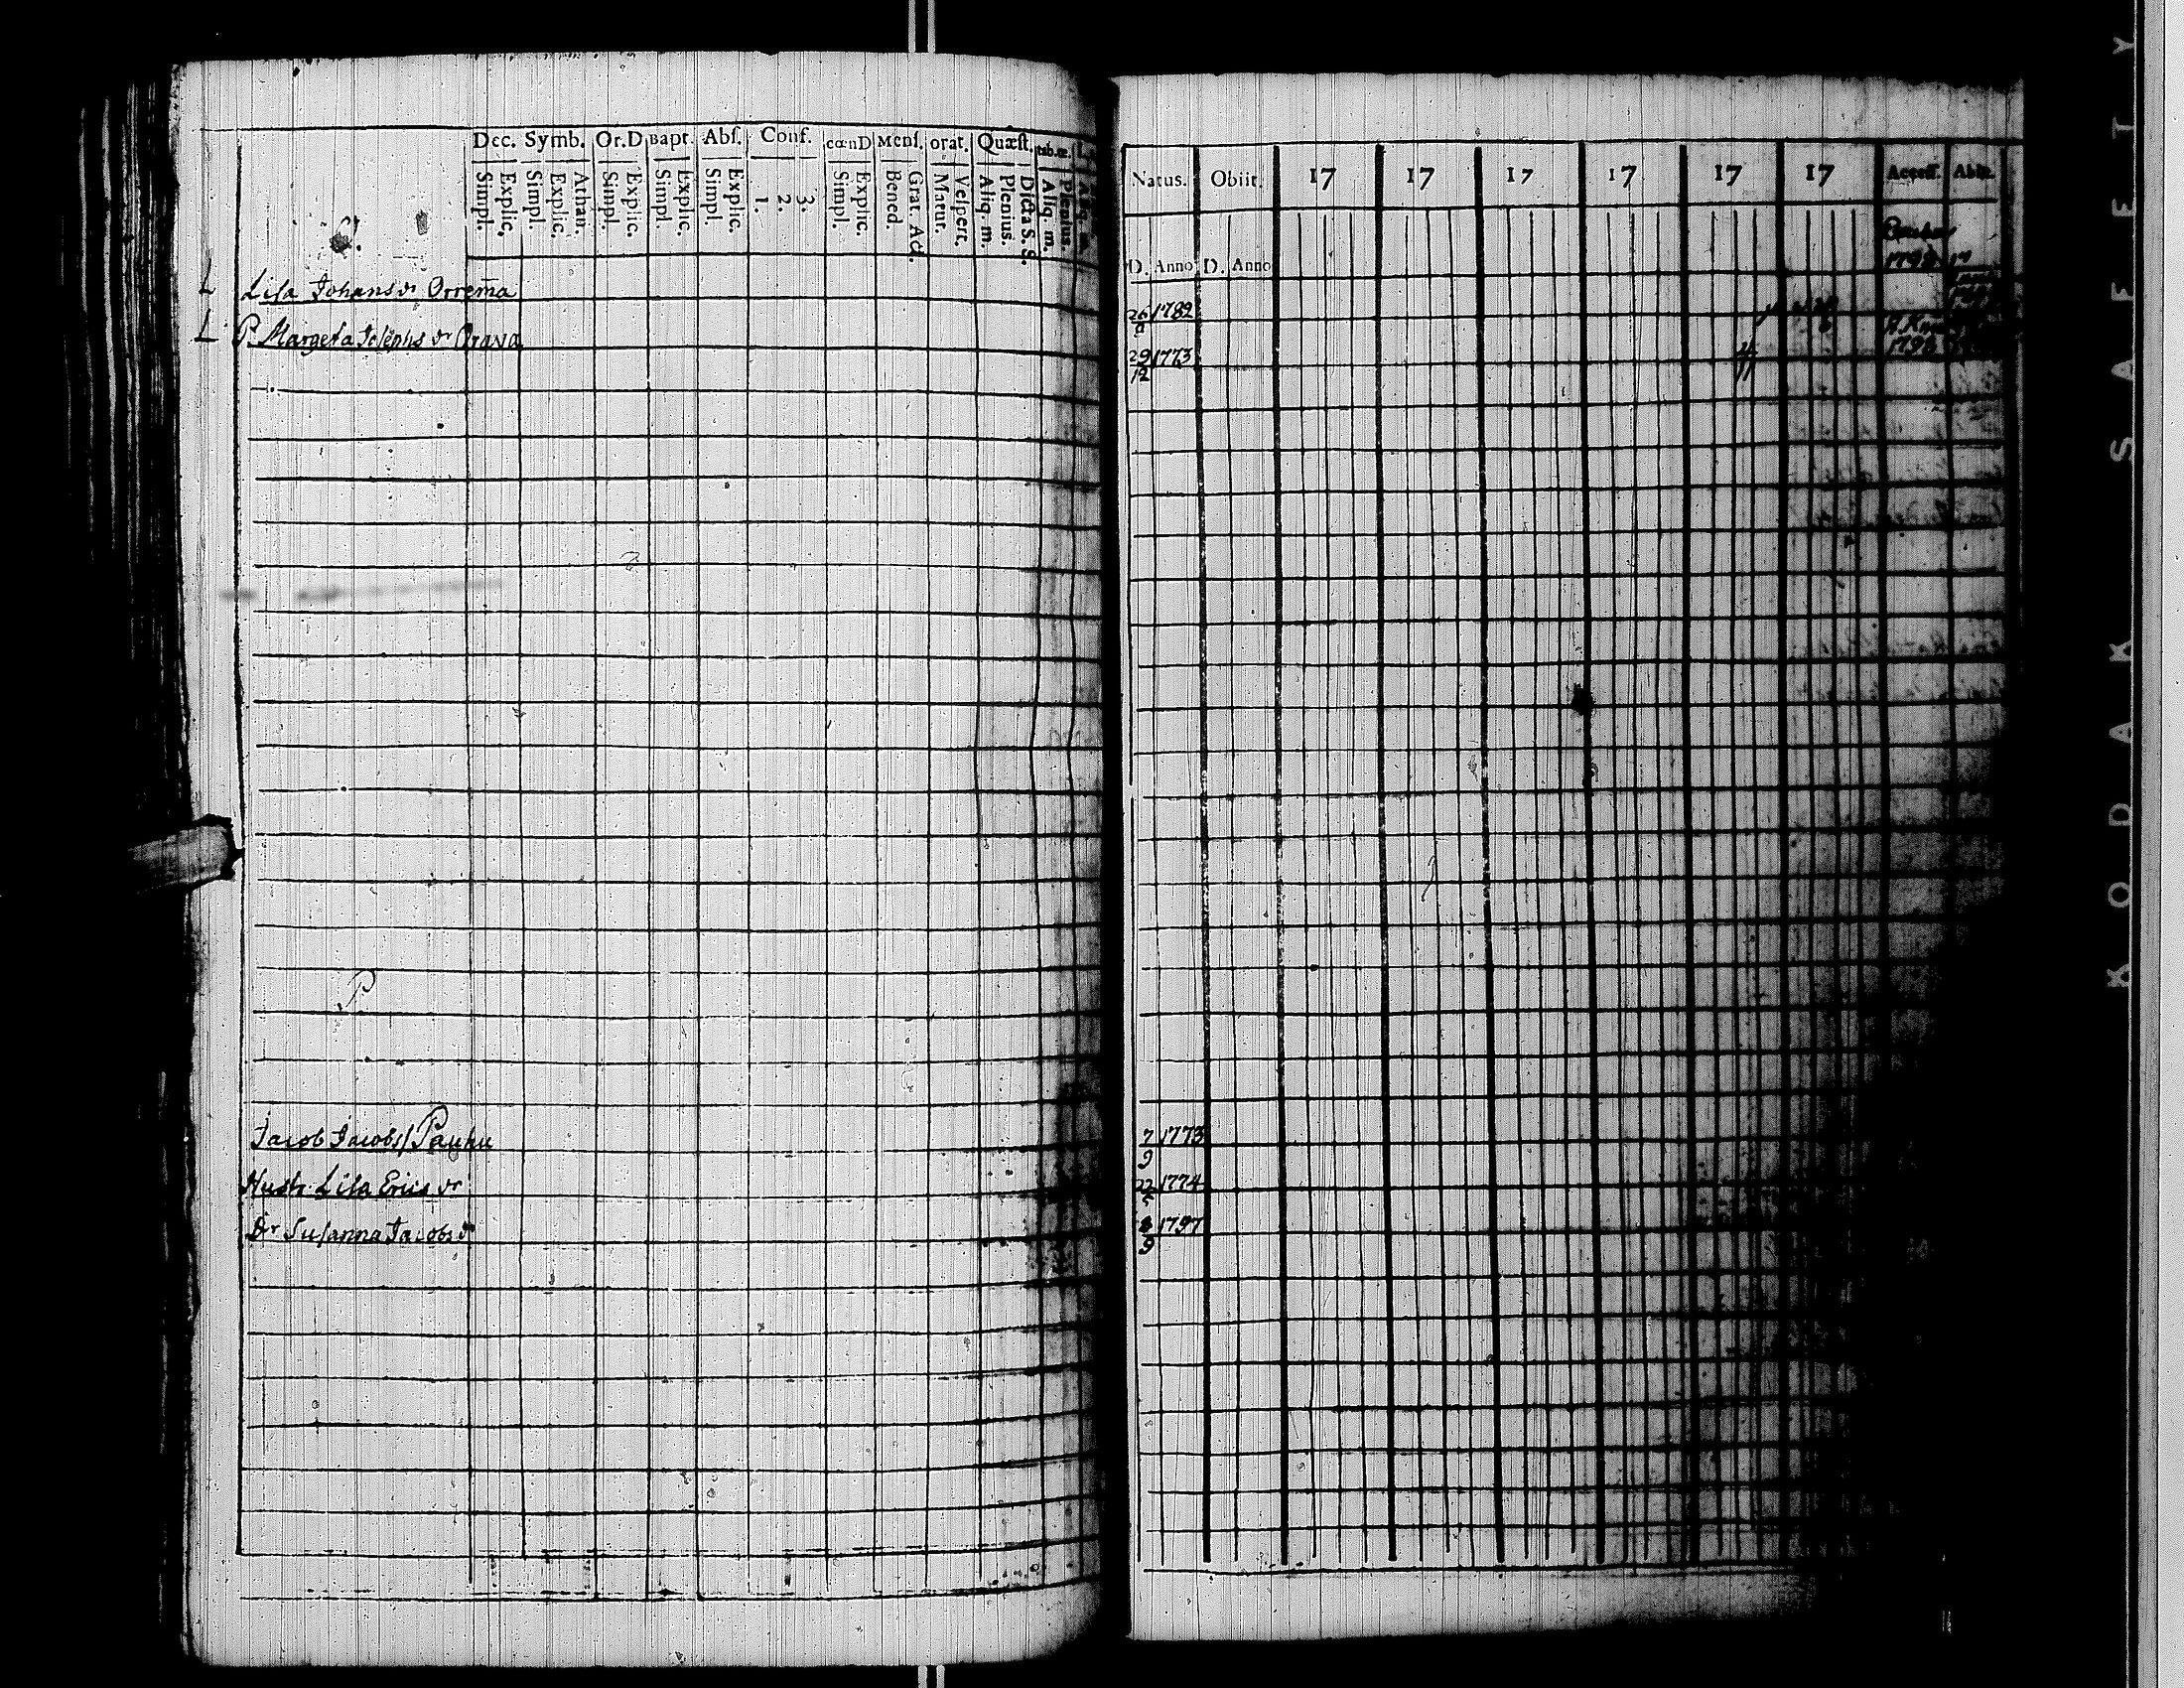 Dec. Symb. Or.D Bapt. Abſ. Conf. cœnD Menſ. orat. Quæſt. tab.œ.
Simpl. Explic. Simpl. Explic. Athan. Simpl. Explic. Simpl. Explic. Simpl. Explic. 1. 2. 3. Simpl. Explic. Bened. Grat. Act. Matut. Veſpert. Aliq. m. Plenius. Dicta S. S. Aliq. m. Plenius.
Natus. Obiit. 17 17 17 17 17 17 Acceſſ. Abiit.
D. Anno D. Anno
1798
L Liſa Johans dr Orrema 26 1782
L P Margeta Joſephs dr Orava 29/12 1773 1798
P
Jacob Jacobs/ Pauhu 7/9 1773
Hustr. Liſa Erics dr 22 1774
Dr Suſanna Jacobs dr 8/9 1797
KODAK SAFETY